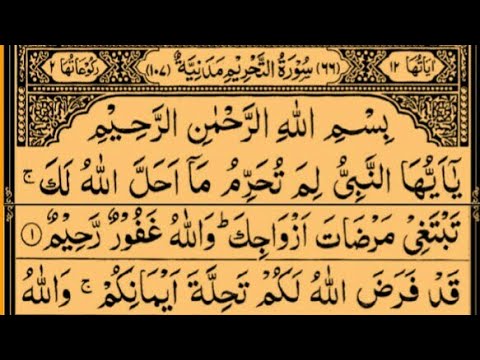 اٰیَاتُهَا ١٢ (٦٦) سُوْرَةُ التَّحْرِیْمِ مَدَنِیَّةٌ (١٠٧) رُكُوْعَاتُهَا ٢
بِسْمِ اللهِ الرَّحْمٰنِ الرَّحِیْمِ
یٰۤاَیُّهَا النَّبِیُّ لِمَ تُحَرِّمُ مَاۤ اَحَلَّ اللهُ لَكَ ۚ
تَبْتَغِیْ مَرْضَاتَ اَزْوَاجِكَ ؕ وَاللهُ غَفُوْرٌ رَّحِیْمٌ ۝١
قَدْ فَرَضَ اللهُ لَكُمْ تَحِلَّةَ اَیْمَانِكُمْ ۚ وَاللهُ